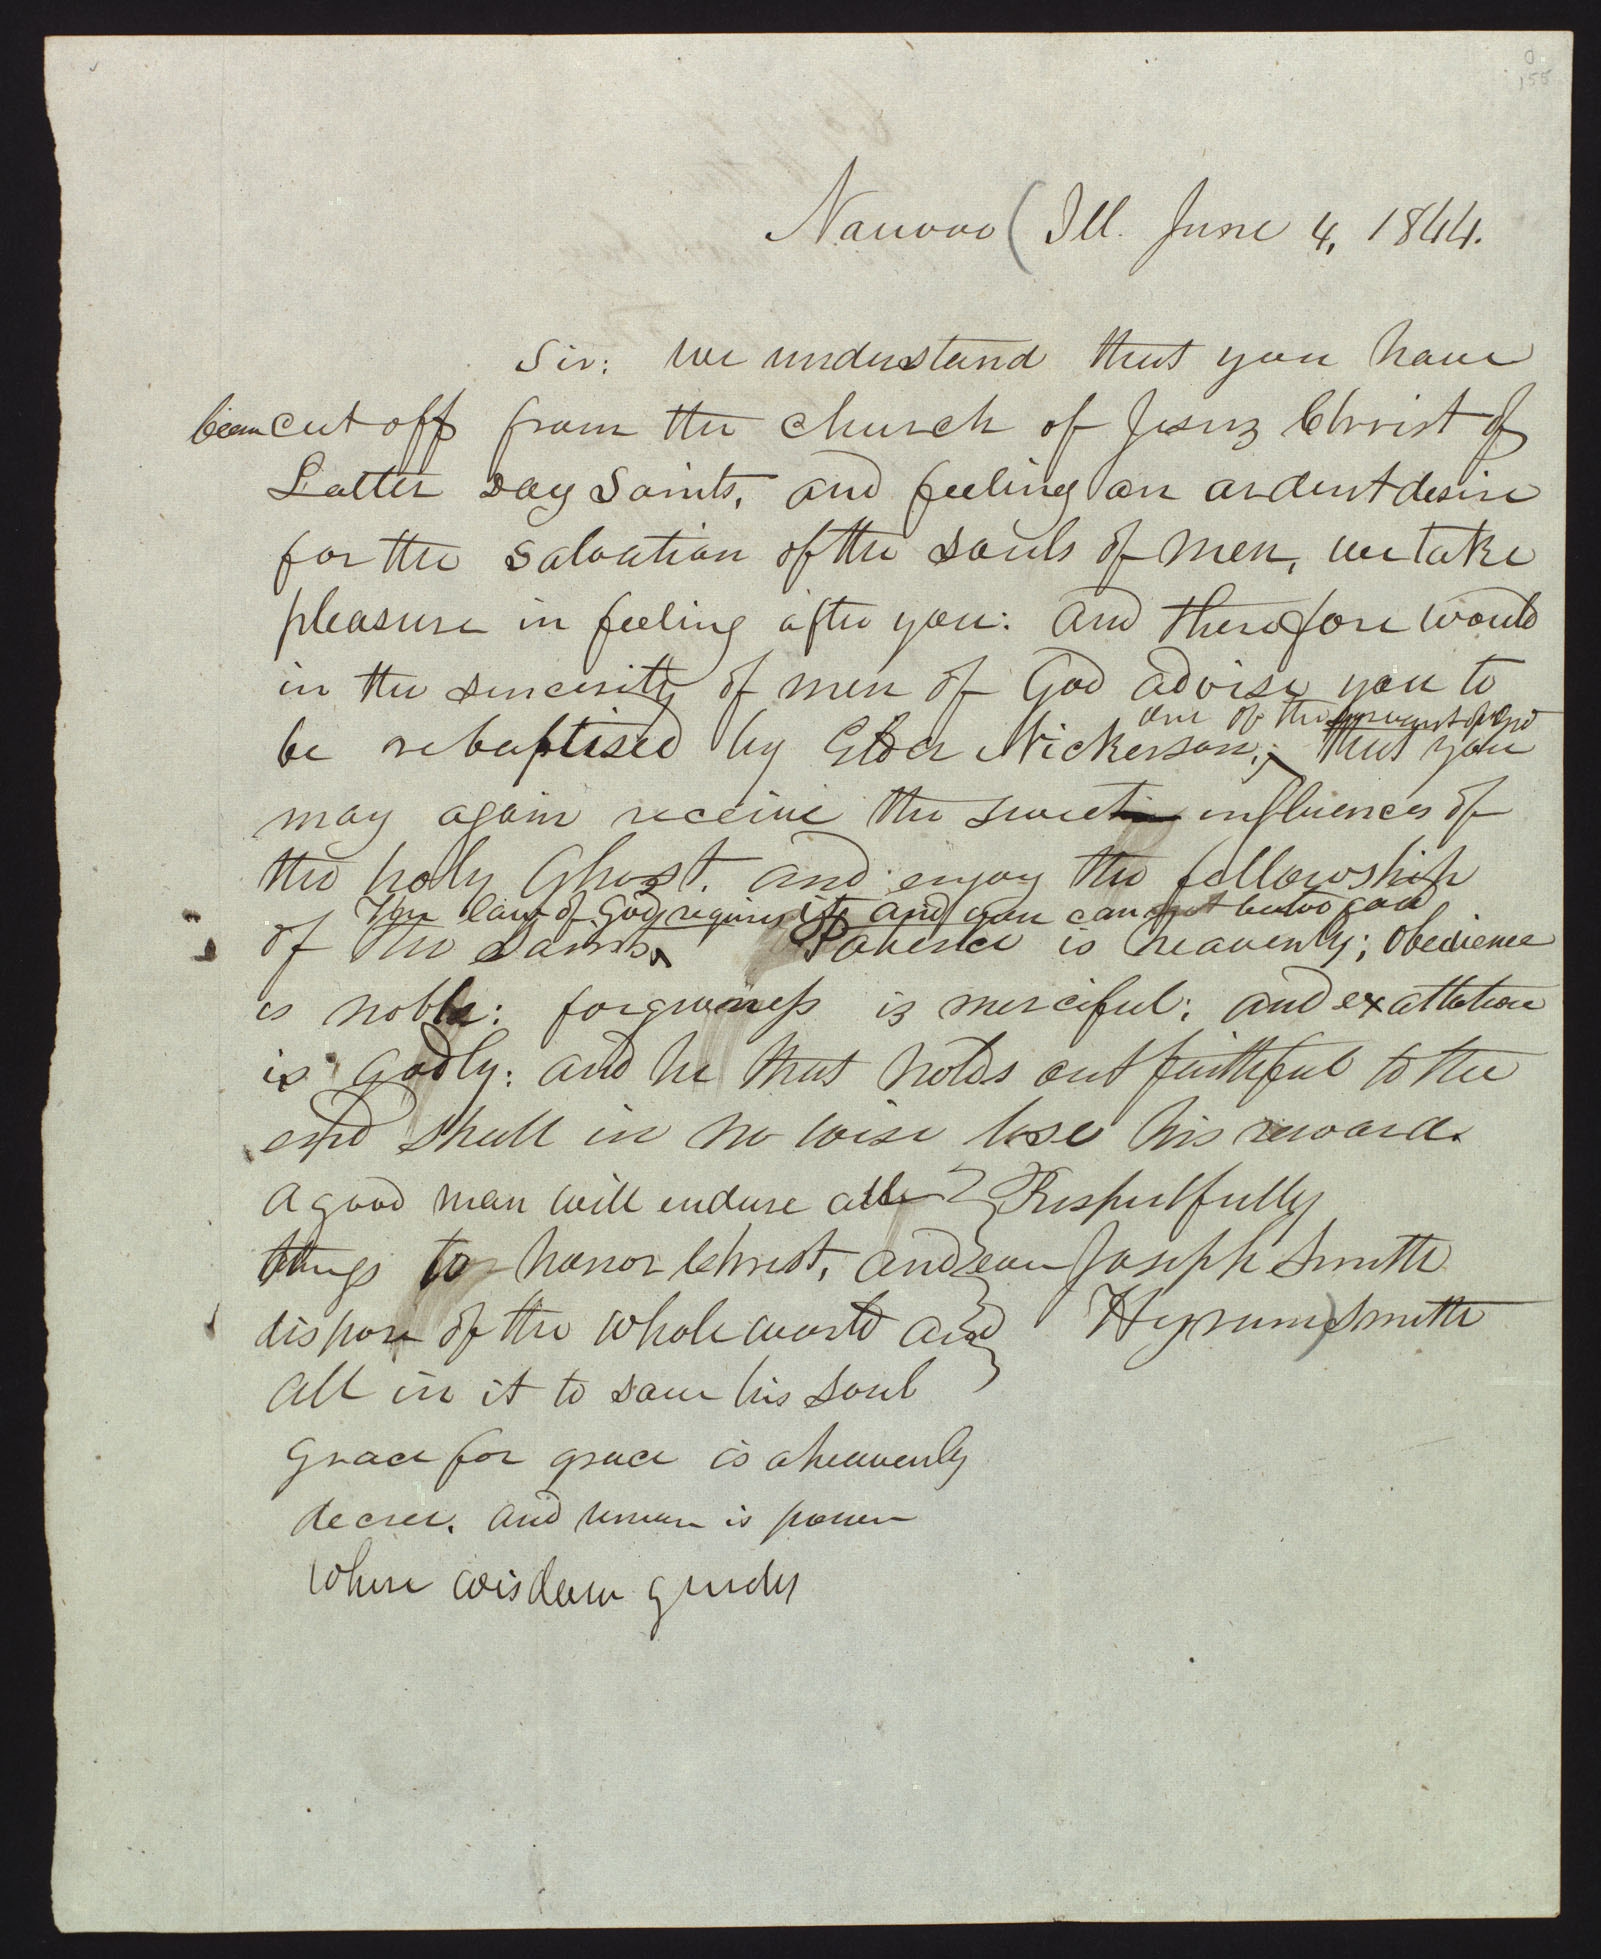 0.
155
Nauvoo (Ill. June 4, 1844.
Sir: we understand that you have
been cut off from the church of Jesus Christ of
Latter Day Saints, and feeling an ardent desire
for the salvation of the souls of men, we take
pleasure in feeling after you: and therefore would
in the sincerity of men of God advise you to
one of the servants of God
be rebaptised by Elder Nickerson, that you
may again receive the sweet influences of
the holy Ghost. and enjoy the fellowship
The law of God requires it, and you cannot be too good
of the saints. Patience is heavenly; obedience
is noble: forgiveness is merciful; and exaltation
is godly: and he that holds out faithful to the
end shall in no wise lose his reward.
A good man will endure all Respectfully
things to honor Christ, and even Joseph Smith
dispose of the whole world and Hyrum Smith
all in it to save his soul
Grace for grace is a heavenly
decree. and union is power
where wisdom guides